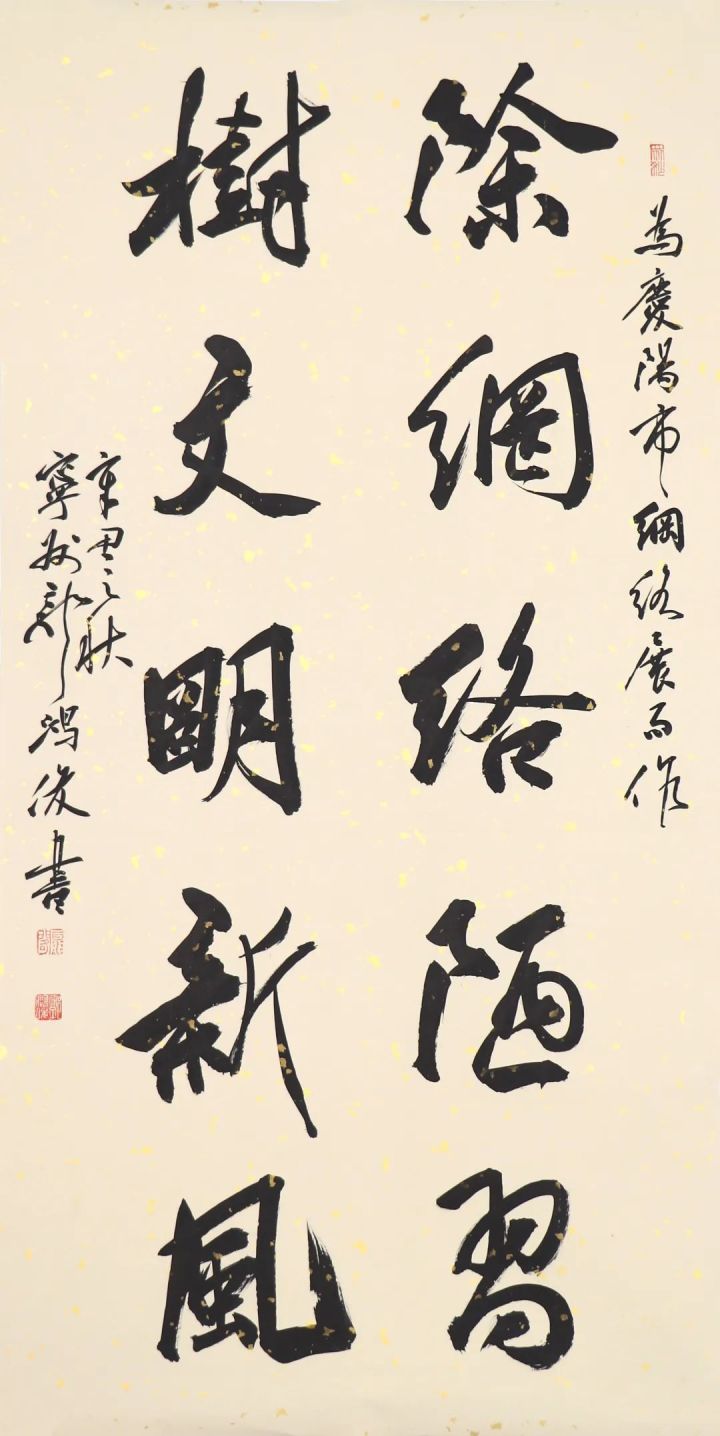 為慶陽市網絡展而作
除網絡陋習
樹文明新風
辛丑之秋
寧州 鴻俊書